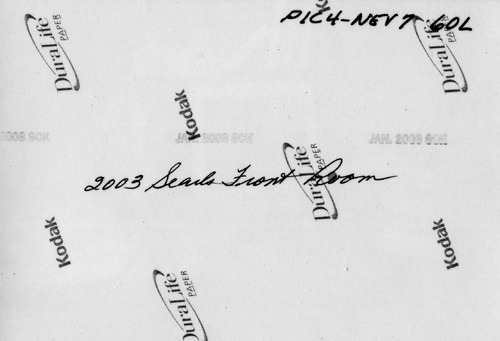 PIC4-NEV7 60L
DuraLife
PAPER
DuraLife
PAPER
Kodak
2008 SCK
JAN. 2008 SCK
JAN. 2008 SCK
DuraLife
PAPER
2003 Searls Front Room
Kodak
Kodak
DuraLife
PAPER